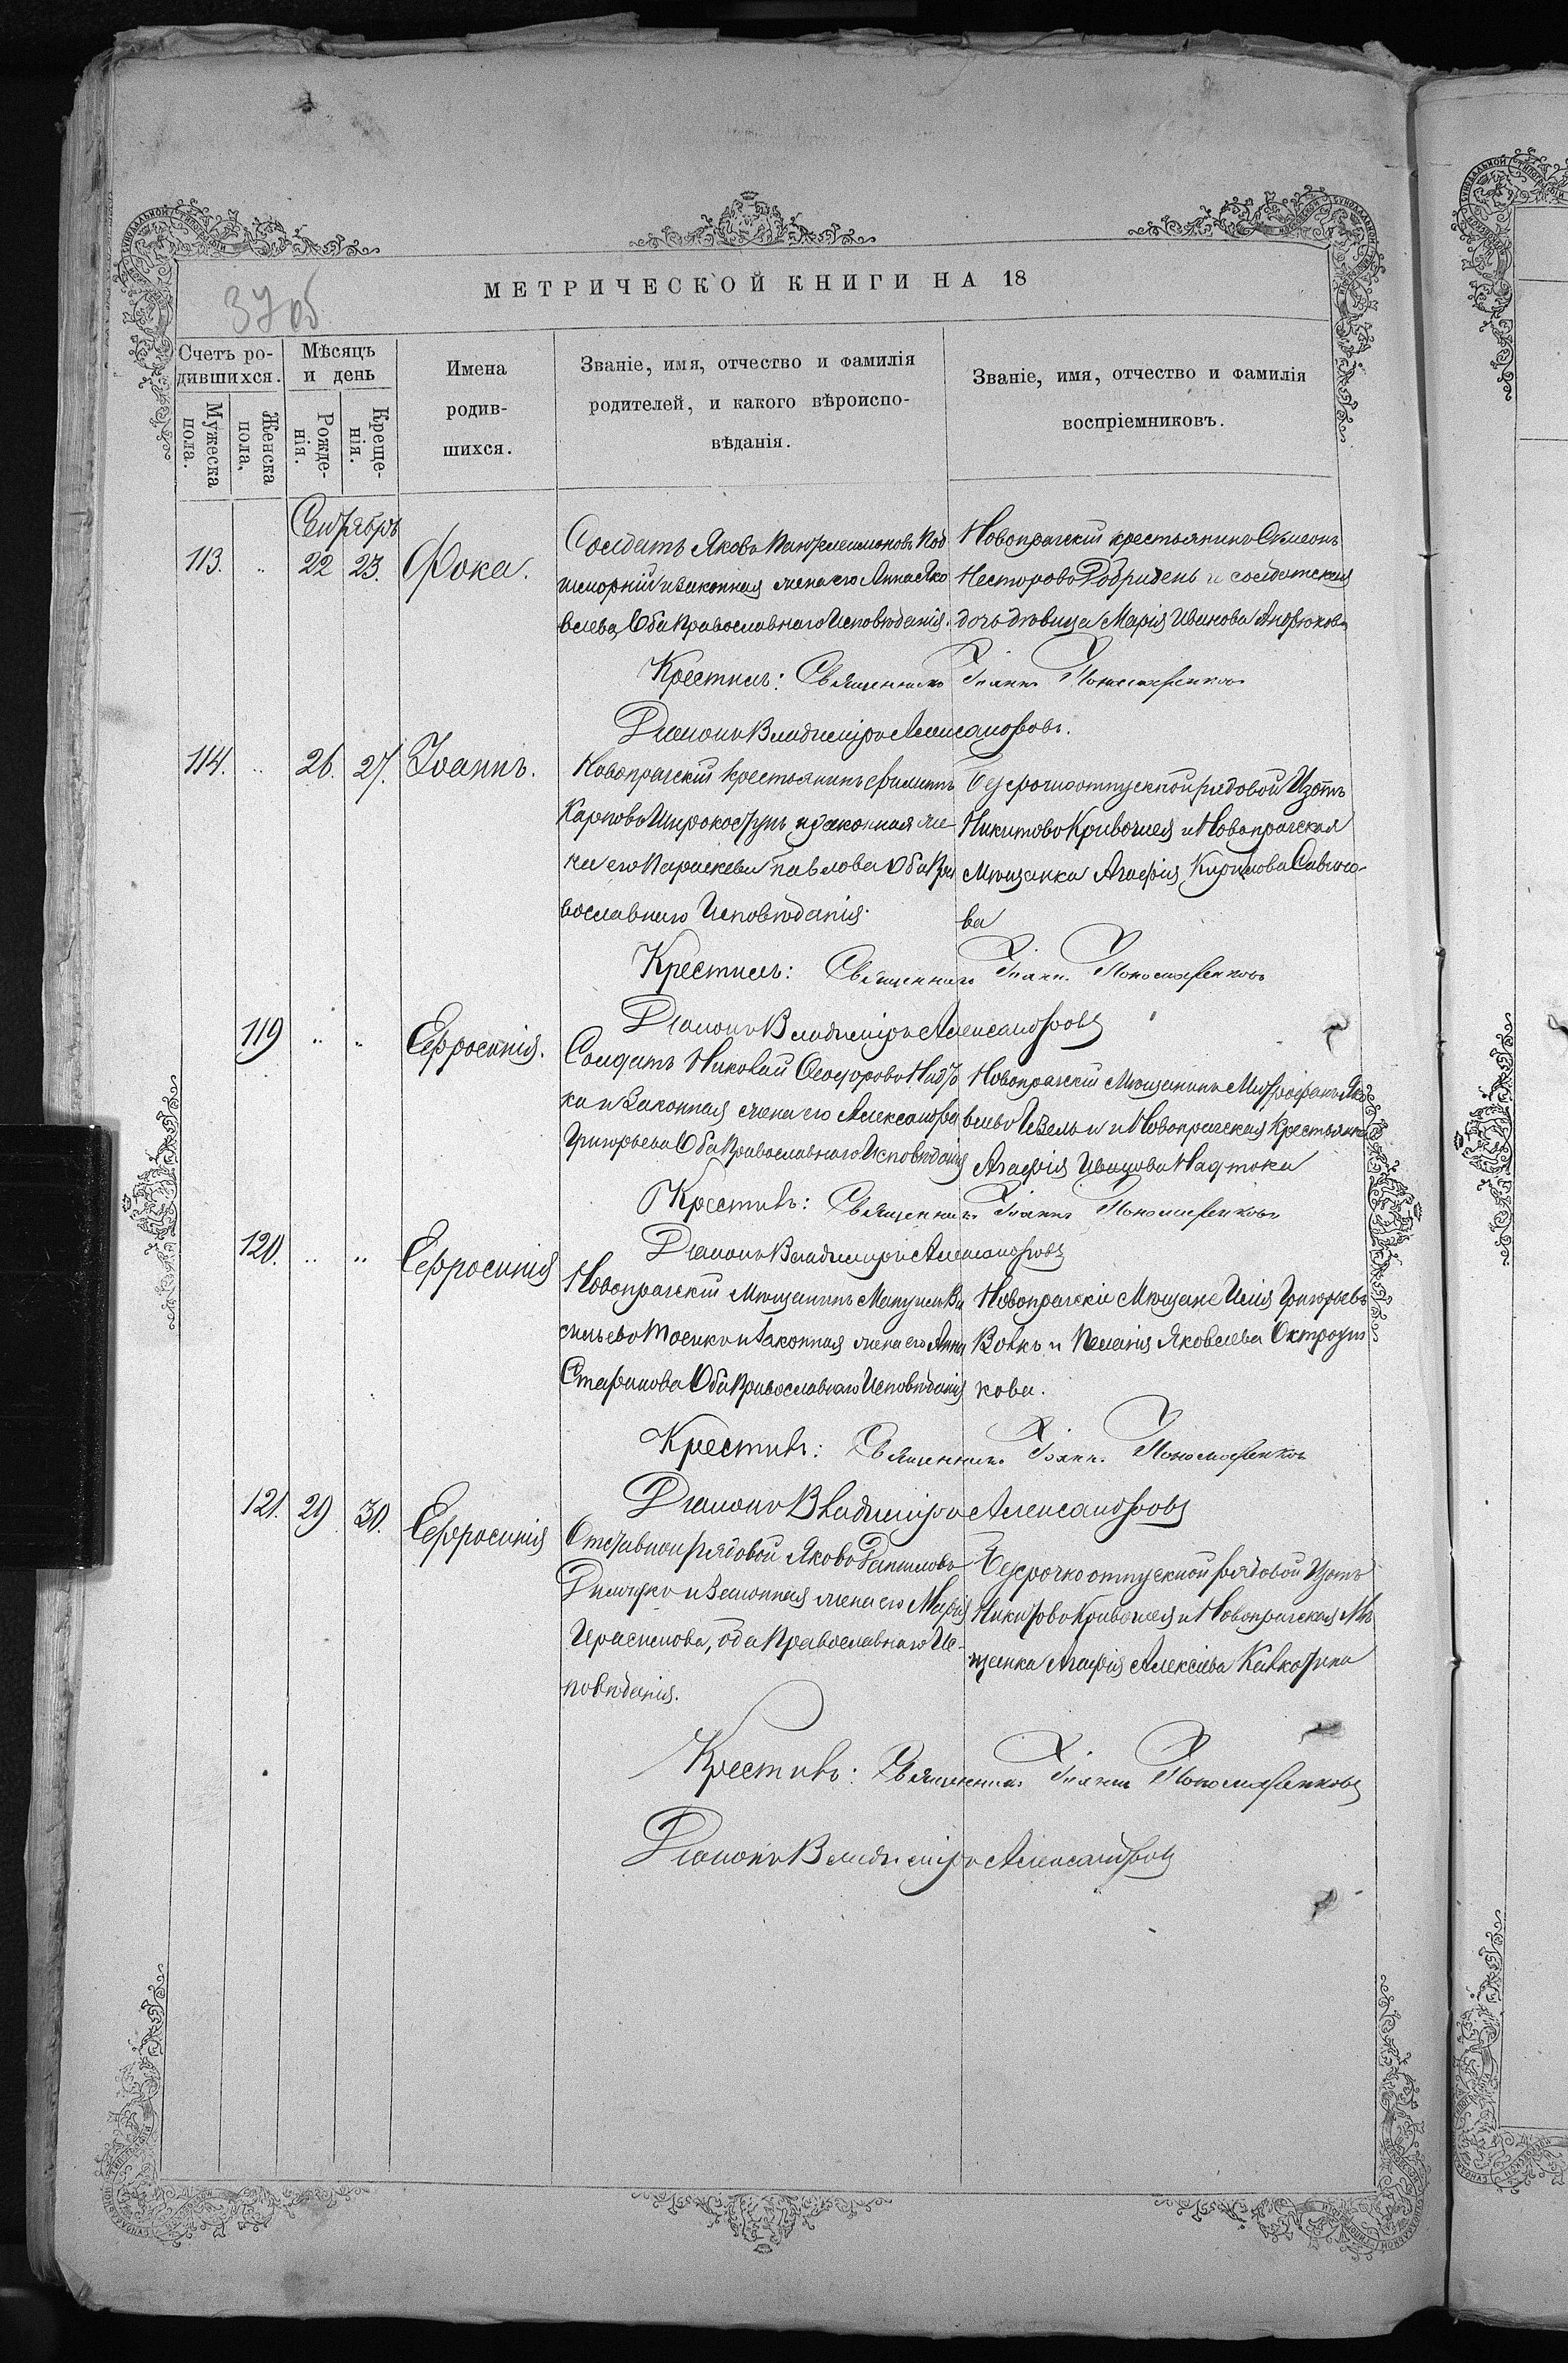 37 об
МЕТРИЧЕСКОЙ КНИГИ НА 18
Счетъ ро-
дившихся.
Мужеска
пола.
Женска
пола,
Мѣсяцъ
и день
Рожде-
нія.
Креще-
нія.
Имена
родив-
шихся.
Званіе, имя, отчество и фамилія
родителей, и какого вѣроиспо-
вѣданія.
Званіе, имя, отчество и фамилія
воспріемниковъ.
Сентябръ
113. .. 22 23. Фока.
Солдатъ Яковъ Пантелеимоновъ Под
и законная жена его Анна Яко
влева, Оба Православнаго Исповѣданія.
Новопрагскій крестьянинъ Симеонъ
Несторовъ Добридень и солдатская
дочь дѣвица Марія Иванова
Крестилъ: Священникъ Іоаннъ Пономаренковъ
Діаконъ Владиміръ Александровъ.
114. .. 26. 27. Іоаннъ.
Новопрагскій крестьянинъ Филиппъ
Карповъ Широкоступъ и законная же-
на его Параскева Павлова Оба Пра
вославнаго Исповѣданія.
Безсрочноотпускной рядовой Изотъ
Никитовъ Кривошея и Новопрагская
Мѣщанка Агафія Кирилова
ва
Крестилъ: Священникъ Іоаннъ Пономаренковъ
Діаконъ Владиміръ Александровъ
119 .. .. Ефросинія.
Солдатъ Николай Ѳеодоровъ Надто
ка и Законная жена его Александра
Григорьева Оба Православнаго Исповѣданія
Новопрагскій Мѣщанинъ Митрофанъ Яко
влевъ и Новопрагская Крестьянка
Агафія Иванова Надтока
Крестилъ: Священникъ Іоаннъ Пономаренковъ
Діаконъ Владиміръ Александровъ
120. .. .. Ефросинія
Новопрагскій Мѣщанинъ Ва
сильевъ и Законная жена его Анна
Стефанова Оба Православнаго Исповѣданія
Новопрагскіе Мѣщане Илія Григорьевъ
Вовкъ и Меланія Яковлева
кова.
Крестилъ: Священникъ Іоаннъ Пономаренковъ
Діаконъ Владиміръ Александровъ
121. 29 30. Ефросинія
Отставной рядовой Яковъ Даниловъ
и Законная жена его Марія
Герасимова, оба Православнаго Ис-
повѣданія.
Безсрочноотпускной рядовой Изотъ
Никитовъ Кривошея и Новопрагская Мѣ
щанка Агафія Алексіева
Крестилъ: Священникъ Іоаннъ Пономаренковъ
Діаконъ Владиміръ Александровъ